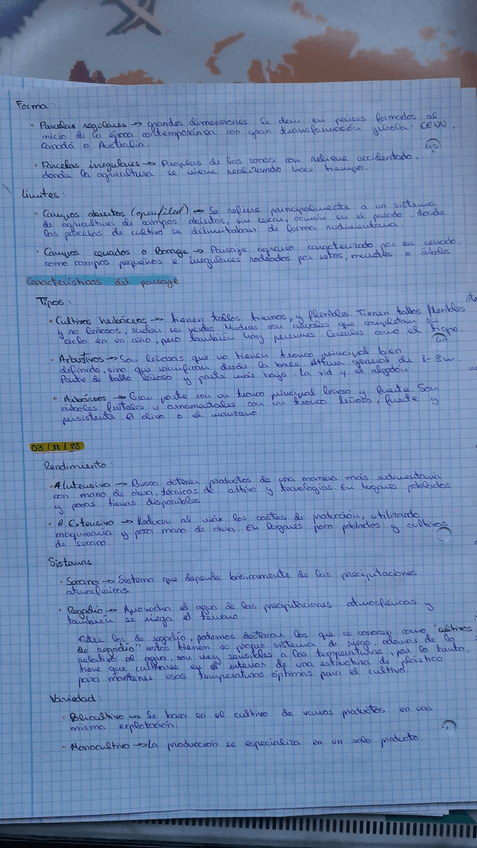 Forma:
· Parcelas regulares → grandes dimensiones. Se dan en países formados al
inicio de la época contemporánea con gran transformación : EEUU,
Canadá o Australia.
· Parcelas irregulares → Propias de las zonas con relieve accidentado,
donde la agricultura se viene realizando hace tiempo.
Límites:
· Campos abiertos (openfield) → Se refiere principalmente a un sistema
de agricultura de campos abiertos, sin cercar, común en el pasado, donde
las parcelas de cultivo se delimitaban de forma rudimentaria.
· Campos cerrados o Bocage → Paisaje agrario caracterizado por su cercado,
como campos pequeños e irregulares rodeados por setos, muretes o árboles.
Características del paisaje
Tipos:
· Cultivos herbáceos → tienen tallos tiernos, y flexibles. Tienen tallos flexibles
y no leñosos, suelen ser verdes. Muchas son anuales que completan su
ciclo en un año, pero también hay perennes. Cereales como el trigo.
· Arbustivos → Son leñosas que no tienen tronco principal bien
definido, sino que ramifican desde la base. Altura general de 1-8m
Parte de tallo leñoso y parte más baja. La vid y el algodón
· → Gran porte con un tronco principal leñoso y fuerte. Son
árboles frutales o ornamentales con un tronco leñoso, fuerte y
persistente. El olivo o el manzano.
03/11/25
Rendimiento:
· A. Intensivo → Busca obtener productos de una manera más rudimentaria
con mano de obra, técnicas de cultivo y tecnologías. En lugares poblados
y pocas tierras disponibles.
· A. Extensivo → Reducen al máx los costes de producción, utilizando
maquinaria y poca mano de obra. En lugares poco poblados y cultivos
de secano.
Sistemas
· Secano → Sistema que depende básicamente de las precipitaciones
atmosféricas.
· Regadío → Aprovecha el agua de las precipitaciones atmosféricas y
también se riega el terreno.
los de regadío, podemos destacar los que se conocen como "cultivos
de regadío" estos tienen su propio sistema de riego, además de la
del agua, son muy sensibles a las temperaturas, por lo tanto,
tiene que cultivarse en el interior de una estructura de plástico
para mantener unas temperaturas óptimas para el cultivo.
Variedad:
· Policultivo → Se basa en el cultivo de varios productos en una
misma explotación.
· Monocultivo → La producción se especializa en un solo producto.